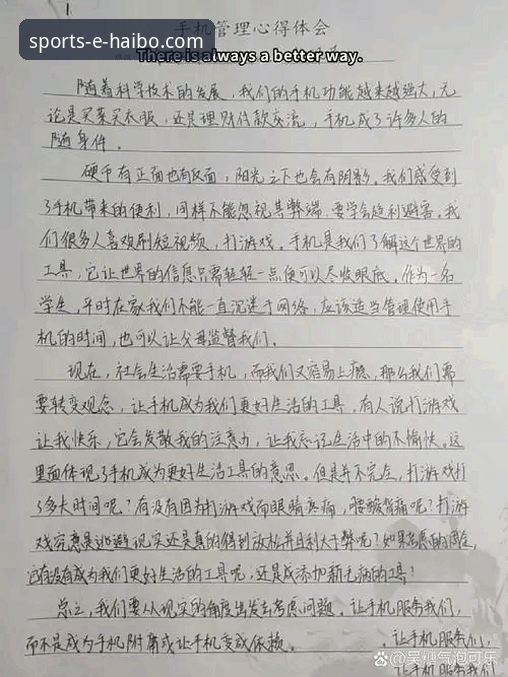 1
手机管理心得体会
sports-e-haibo.com
There is always a better way.
随着科学技术的发展，我们的手机功能越来越强大，无
论是买菜买衣服，还是理财付款交流，手机成了许多人的
随身件。
硬币有正面也有反面，阳光之下也会有阴影。我们感受到
了手机带来的便利，同样不能忽视其弊端，要学会趋利避害。我
们很多人喜欢刷短视频，打游戏，手机是我们了解这个世界的
工具，它让世界的信息只需轻轻一点便可以尽收眼底。作为一名
学生，平时在家我们不能一直沉迷于网络，应该适当管理使用手
机的时间，也可以让父母监督我们。
现在，社会生活需要手机，而我们又容易上瘾，那么我们需
要转变观念，让手机成为我们更好生活的工具，有人说打游戏
让我快乐，它会发散我的注意力，让我忘记生活中的不愉快。这
里面体现了手机成为更好生活工具的意思。但是并不完全，打游戏打
了多大时间呢？有没有因为打游戏而眼睛疼痛，腰酸背痛呢？打游
戏究竟是逃避现实还是真的得到放松并且利大于弊呢？如果考虑的周全，
它有没有成为我们更好生活的工具呢，还是成添加新毛病的工具？
总之，我们要从现实的角度出发去考虑问题，让手机服务我们，
而不是成为手机附庸或让手机变成依赖。
，让手机服务们，
让手机服务我们
吴迪气泡可乐